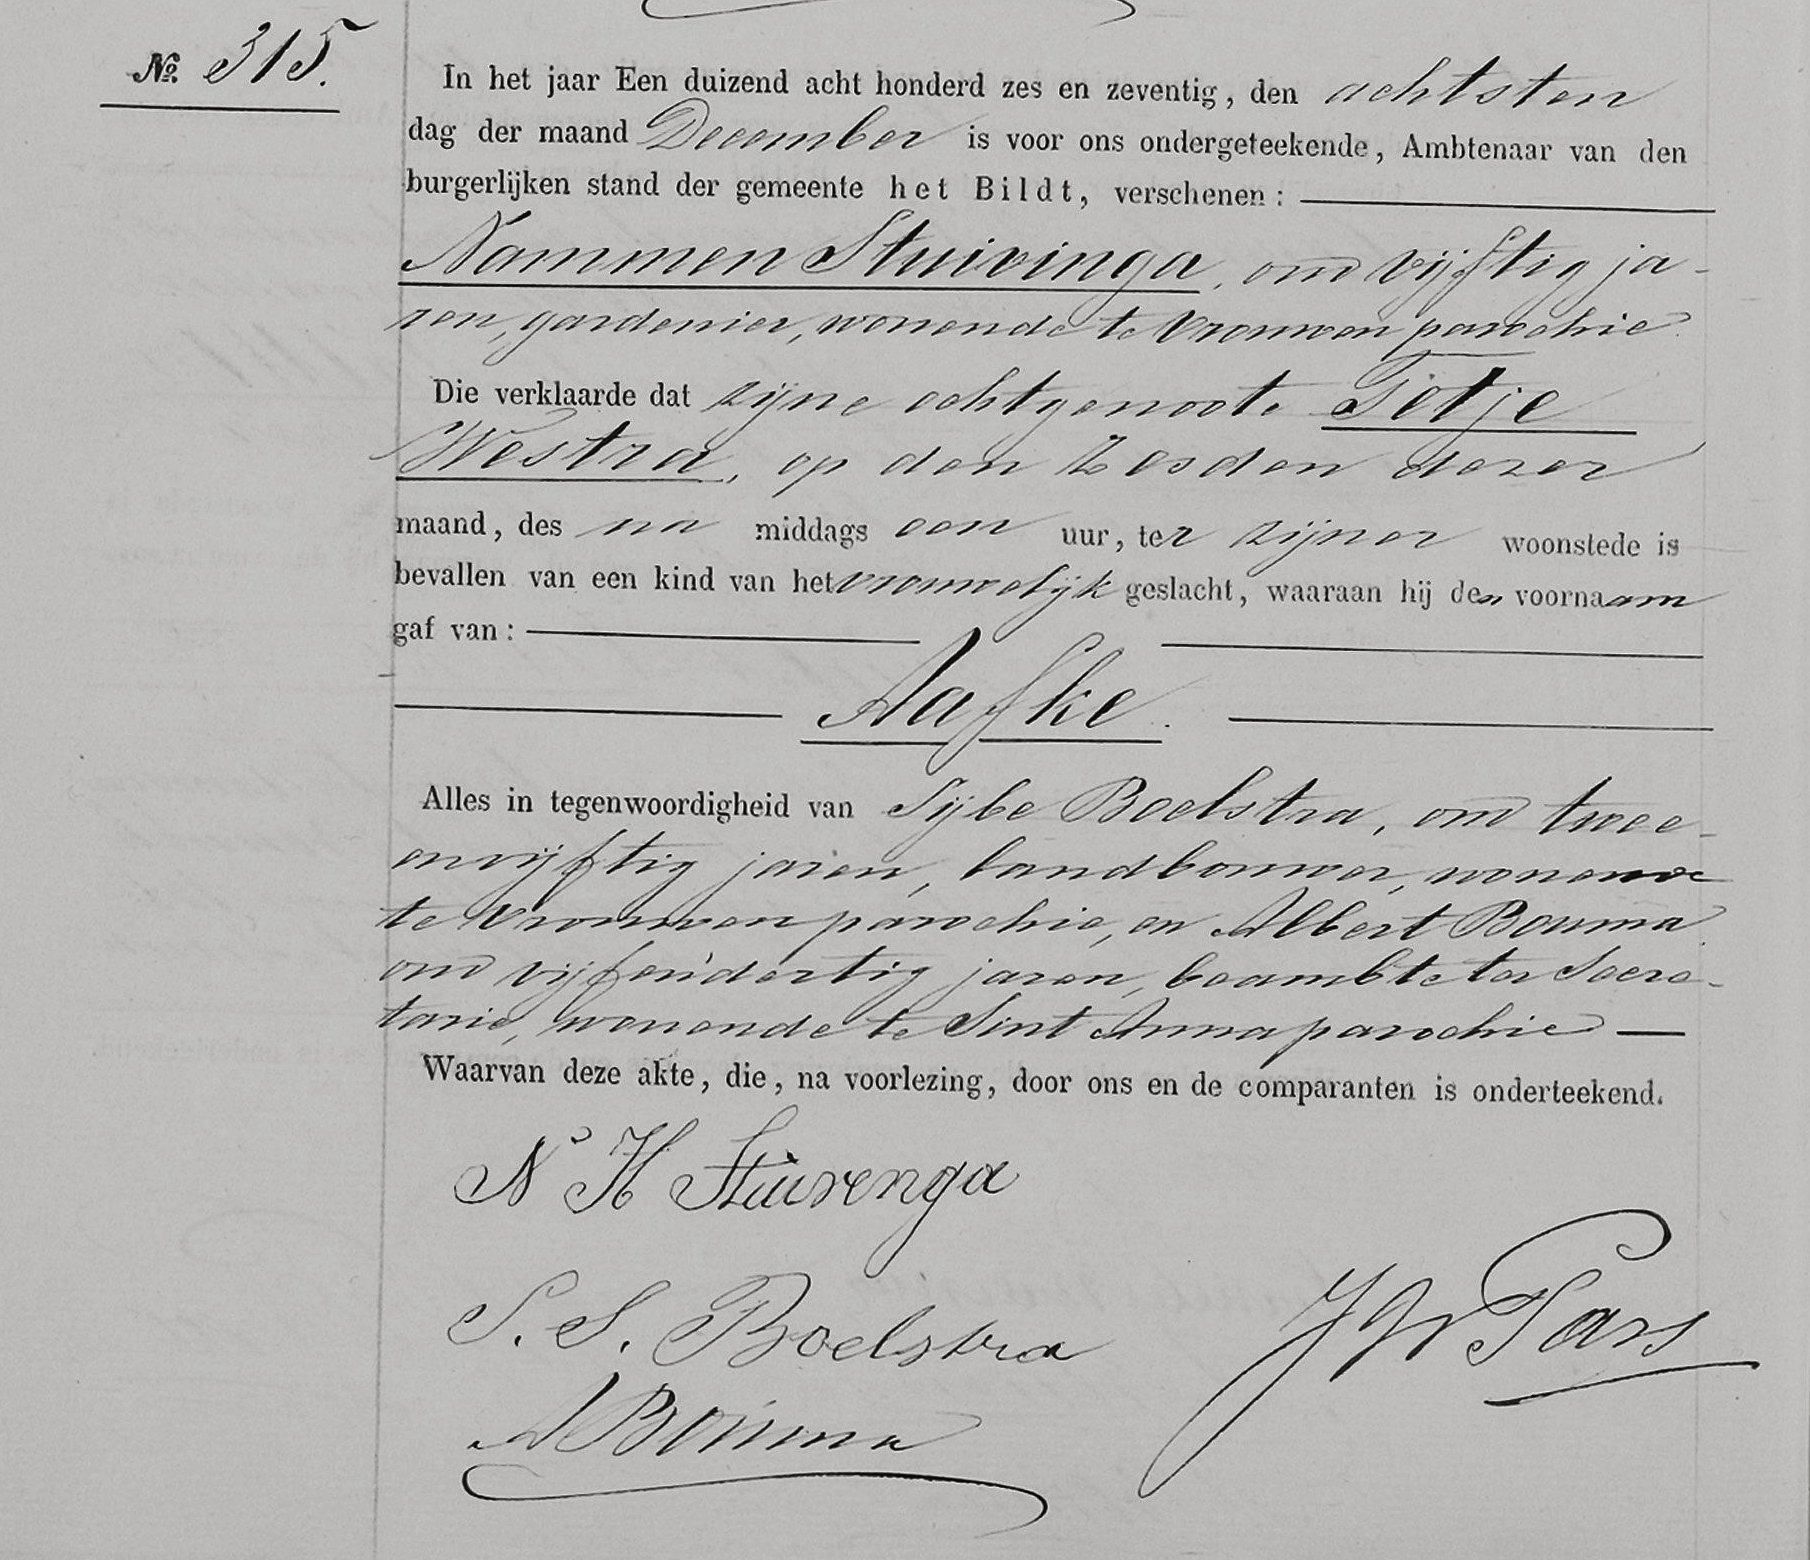 №. 315.
In het jaar Een duizend acht honderd zes en zeventig, den achtsten
dag der maand December is voor ons ondergeteekende, Ambtenaar van den
burgerlijken stand der gemeente het Bildt, verschenen:
Nammen Stuivinga, oud vijftig ja-
ren, gardenier, wonende te Vrouwenparochie.
Die verklaarde dat zijne echtgenoote Tetje
Westra, op den zesden dezer
maand, des na middags een uur, ter zijner woonstede is
bevallen van een kind van het vrouwelijk geslacht, waaraan hij den voornaam
gaf van:
Aafke.
Alles in tegenwoordigheid van Sijbe Boelstra, oud twee-
envijftig jaren, landbouwer, wonende
te Vrouwenparochie, en Albert Bouma
oud vijfendertig jaren, beambte ter Secre-
tarie, wonende te Sint Annaparochie
Waarvan deze akte, die, na voorlezing, door ons en de comparanten is onderteekend.
N H Stuivenga
S. S. Boelstra
ABouma